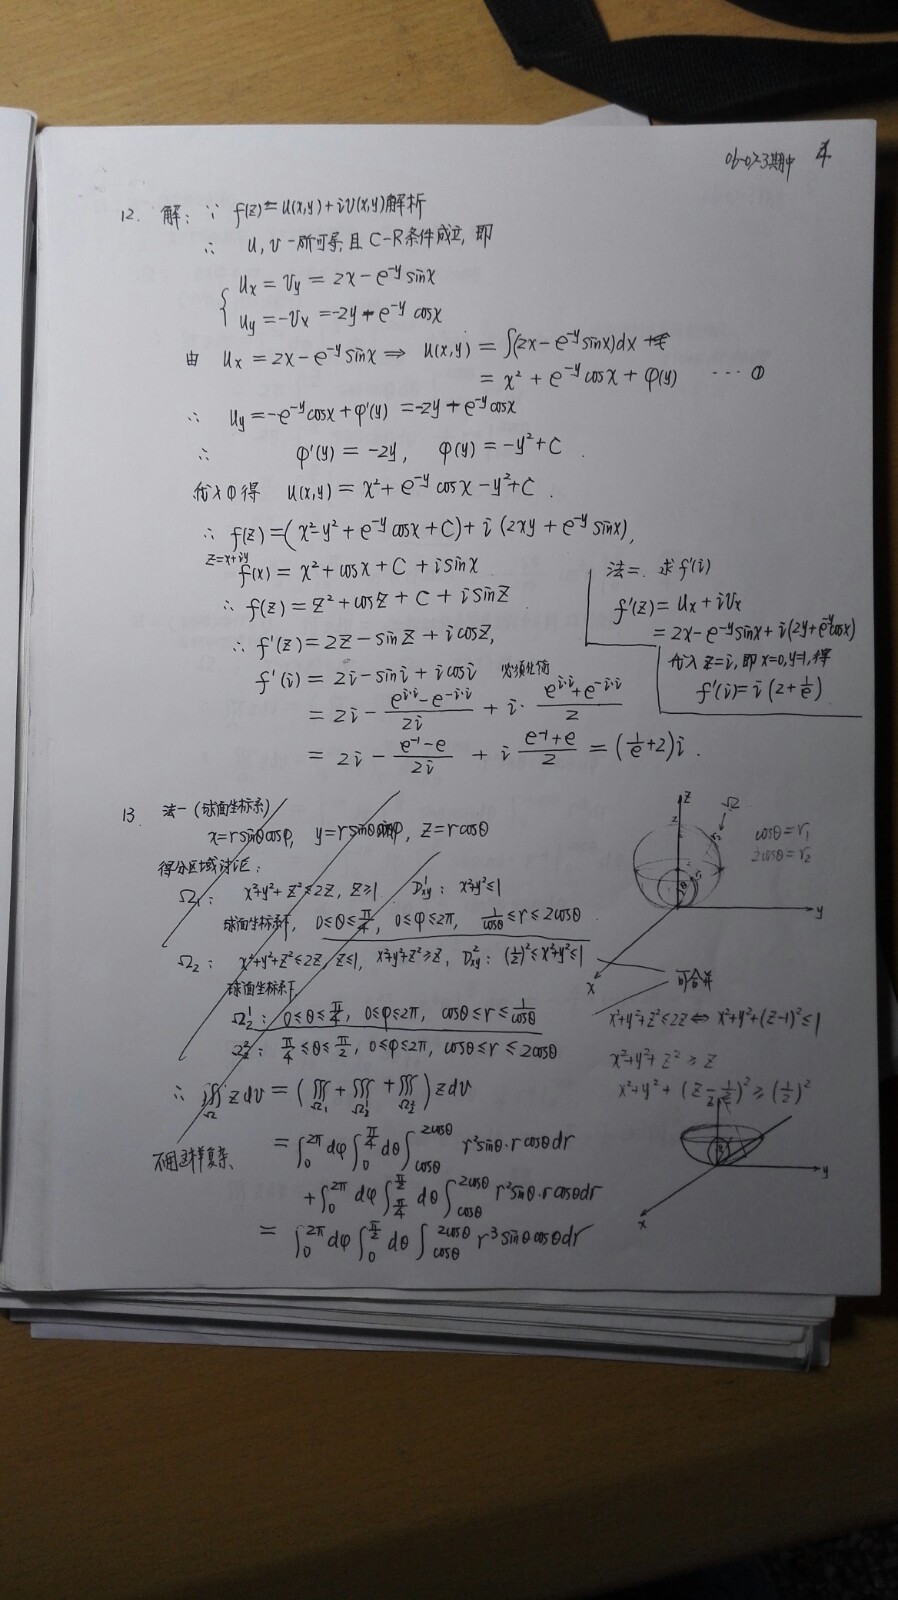 06-07-3期中 4
12. 解: ∵ f(z)=u(x,y)+iv(x,y)解析
∴ u, v 一阶可导, 且 C-R条件成立, 即
{ ux = vy = 2x-e^-y sinx
uy = -vx = -2y+e^-y cosx
由 ux = 2x-e^-y sinx ⇒ u(x,y) = ∫(2x-e^-y sinx)dx
= x²+e^-y cosx+φ(y) ··· ①
∴ uy = -e^-y cosx+φ'(y) = -2y+e^-y cosx
∴ φ'(y) = -2y, φ(y) = -y²+C.
代入①得 u(x,y) = x²+e^-y cosx-y²+C.
∴ f(z) = (x²-y²+e^-y cosx+C)+i(2xy+e^-y sinx),
z=x+iy
f(x) = x²+cosx+C+isinx
∴ f(z) = z²+cosz+C+isinz
∴ f'(z) = 2z-sinz+icosz,
f'(i) = 2i-sini+icosi 必须化简
= 2i - (e^i·i - e^-i·i)/2i + i·(e^i·i + e^-i·i)/2
= 2i - (e^-1 - e)/2i + i (e^-1 + e)/2 = (1/e+2)i.
法二. 求f'(i)
f'(z) = ux+ivx
= 2x-e^-y sinx+i(2y+e^-y cosx)
代入z=i, 即x=0,y=1, 得
f'(i) = i(2+1/e)
13. 法一(球面坐标系)
x=rsinθcosφ, y=rsinθsinφ, z=rcosθ
得分区域讨论:
Ω1: x²+y²+z²≤2z, z≥1 D¹xy: x²+y²≤1
球面坐标系下, 0≤θ≤π/4, 0≤φ≤2π, 1/cosθ≤r≤2cosθ
Ω2: x²+y²+z²≤2z, z≤1, x²+y²+z²≥z, D²xy: (1/2)²≤x²+y²≤1
球面坐标系下
Ω2¹: 0≤θ≤π/4, 0≤φ≤2π, cosθ≤r≤1/cosθ
Ω2²: π/4≤θ≤π/2, 0≤φ≤2π, cosθ≤r≤2cosθ
可合并
∴ ∭Ω zdv = (∭Ω1+∭Ω2¹+∭Ω2²)zdv
不用这样复杂.
= ∫0^2π dφ∫0^π/4 dθ∫cosθ^2cosθ r²sinθ·rcosθdr
+∫0^2π dφ∫π/4^π/2 dθ∫cosθ^2cosθ r²sinθ·rcosθdr
= ∫0^2π dφ∫0^π/2 dθ∫cosθ^2cosθ r³sinθcosθdr
z
Ω
cosθ=r1
2cosθ=r2
y
x
x²+y²+z²≤2z ⇔ x²+y²+(z-1)²≤1
x²+y²+z²≥z
x²+y²+(z-1/2)²≥(1/2)²
z
y
x